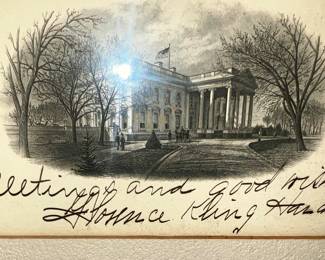 eetings and good wis
Florence Kling Har